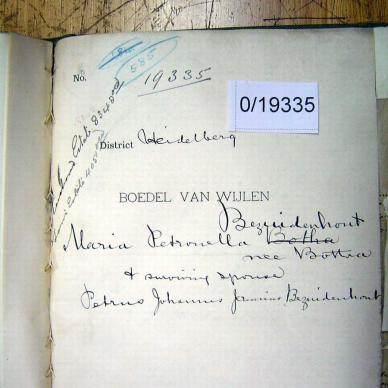 585
No. 19335
0/19335
District Heidelberg
BOEDEL VAN WIJLEN
Bezuidenhout
Maria Petronella Botha
nee Botha
& surviving spouse
Petrus Johannes Jeremias Bezuidenhout